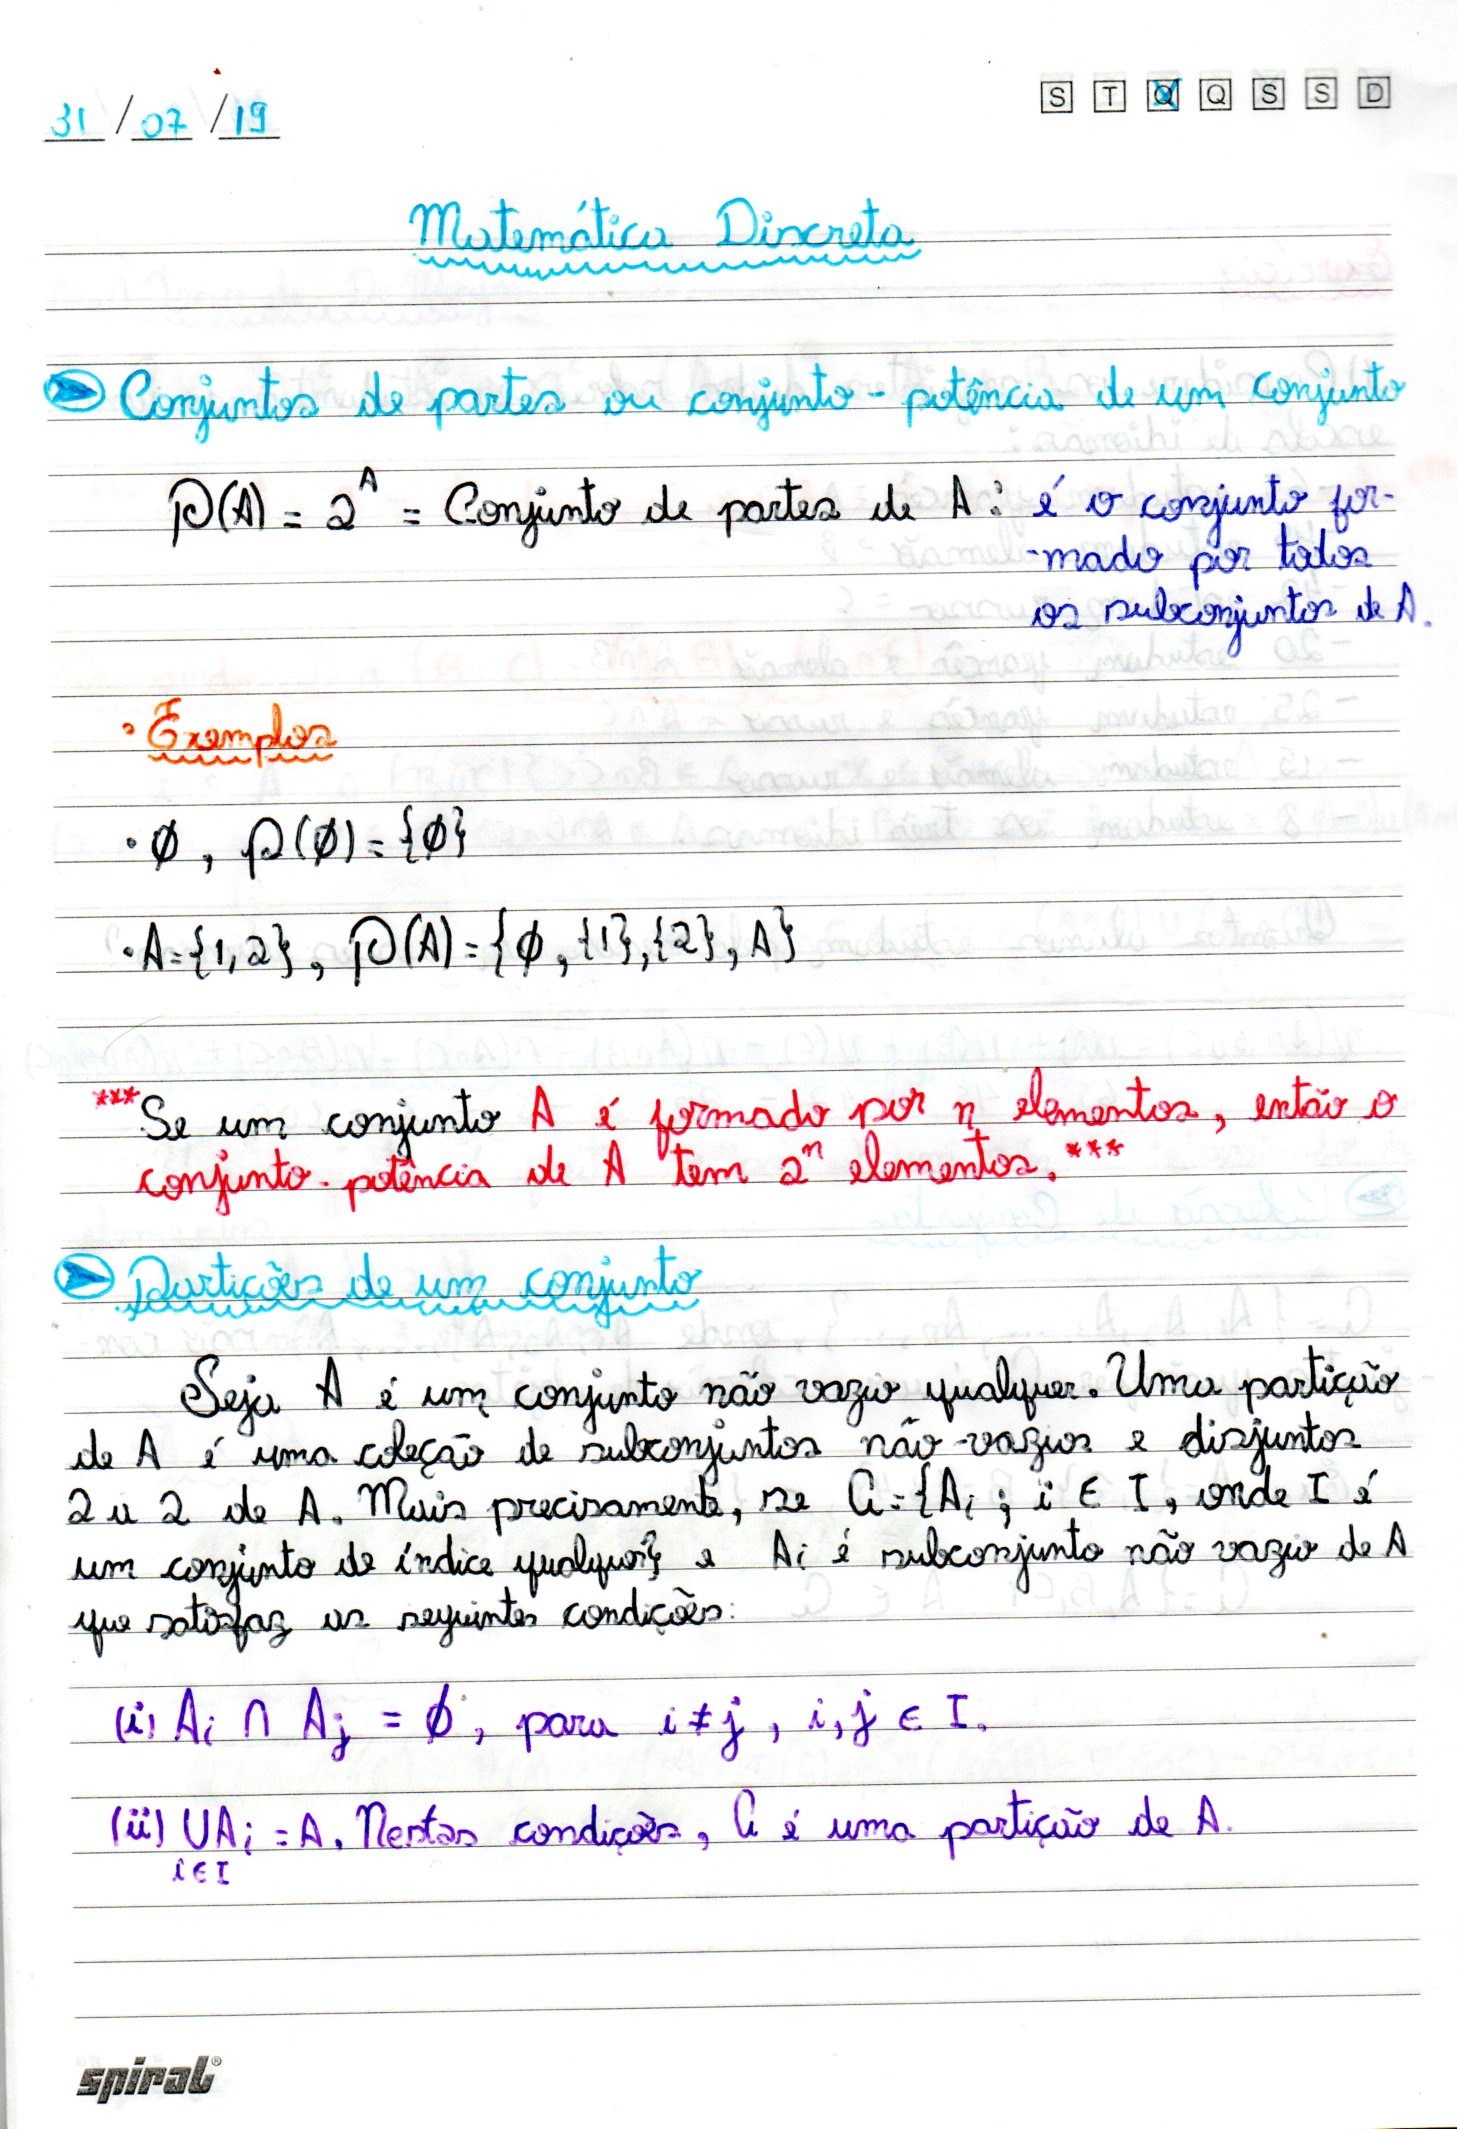 31/07/19
S T Q Q S S D
Matemática Discreta
Conjuntos de partes ou conjunto-potência de um conjunto
℘(A) = 2^A = Conjunto de partes de A: é o conjunto for-
-mado por todos
os subconjuntos de A.
• Exemplos
• ∅, ℘(∅) = {∅}
• A = {1, 2}, ℘(A) = {∅, {1}, {2}, A}
*** Se um conjunto A é formado por n elementos, então o
conjunto-potência de A tem 2^n elementos. ***
Partições de um conjunto
Seja A é um conjunto não vazio qualquer. Uma partição
de A é uma coleção de subconjuntos não-vazios e disjuntos
2 a 2 de A. Mais precisamente, se 𝒞 = {Ai ; i ∈ I, onde I é
um conjunto de índice qualquer} e Ai é subconjunto não vazio de A
que satisfaz as seguintes condições:
(i) Ai ∩ Aj = ∅, para i ≠ j, i, j ∈ I.
(ii) ∪Ai = A. Nestas condições, 𝒞 é uma partição de A.
i ∈ I
spiral®